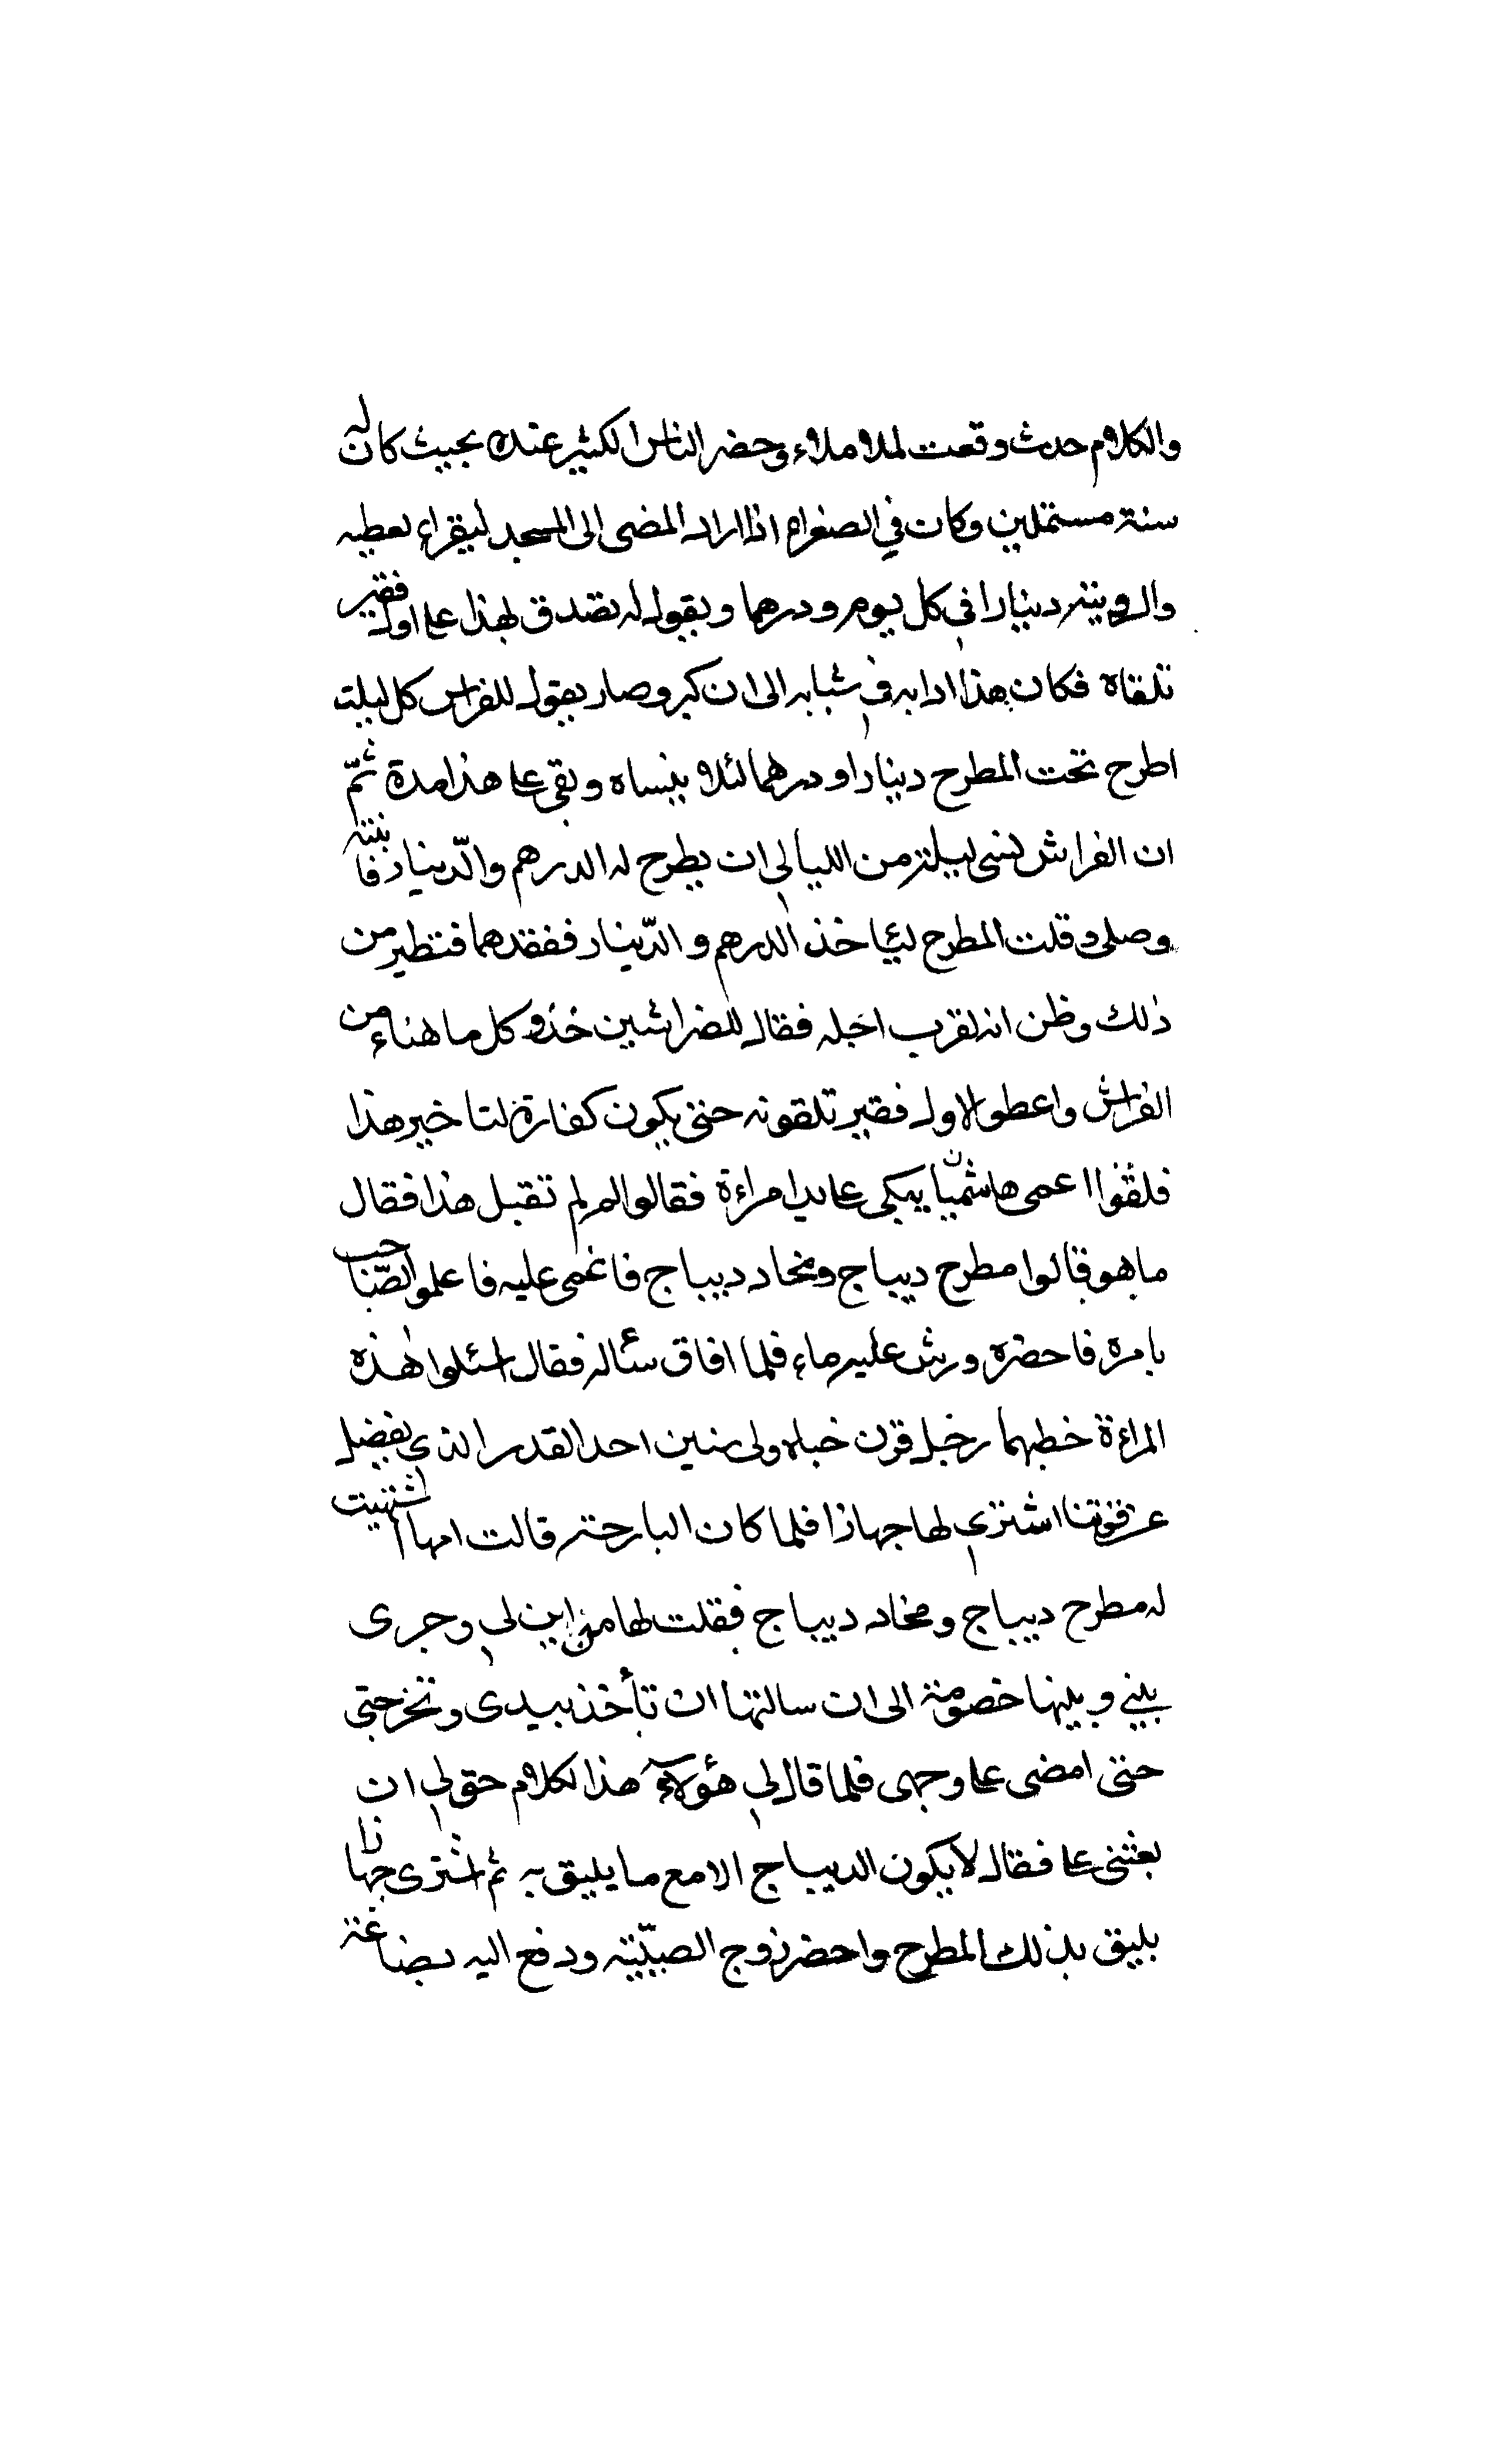 والكلام حدث وقعت لملا ملاء وحضر الناس الكثير عنده بحيث كان له
سنة مستملين وكان في الصغرام اذا اراد المضى الى المسجد ليقراء لعطيه
والدويته دينارا في كل يوم ودرهما ويقول له تصدق لهذا على اول فقير
تلقاه فكان هذا ادابه في شبابه الى ان كبر وصار يقول للفراس كل ليلة
اطرح تحت المطرح دينارا ودرهما لئلا ينساه وبقى على هذا مدة ثمّ
ان الفراش نسى ليلة من الليالي ان يطرح له الدرهم والدّينار فانتبه
وصلى وقلت المطرح ليئاخذ الدرهم والدّينار ففقدهما فتطير من
ذلك وظن انه لقرب اجله فقال للضراشين خذو كل ما هناء من
الفراش واعطو لاول فقير تلقونه حتى يكون كفارة لتاخير هذا
فلقوا اعمى هاشميا يبكى على يد امراءة فقالوا لم تقبل هذا فقال
ما هو قالوا مطرح ديباج ومخاد ديباج فاغمى عليه فاعلموا لصّاحب
بامره فاحضره ورش عليه ماء فلما افاق سئاله فقال اسئلوا هذه
المراءة خطبها رجل قرن خباه ولى سنين احد القدر الذى يفضل
عن قوتنا اشترى لها جهازا فلما كان البارحة قالت امها اشتهيت
له مطرح ديباج ومخاد ديباج فقلت لها من اين لي وجرى
بيني وبينها خصومة الى ان سالتها ان تأخذ بيدى وتخرجنى
حتى امضى على وجهى فلما قال لي هؤلاء هذا لكلام حق لي ان
يغشى على فقال لا يكون الديباج الا مع ما يليق به ثم اشترى جهازا
يليق بذلك المطرح واحضر زوج الصبيّة ودفع اليه بضاعة